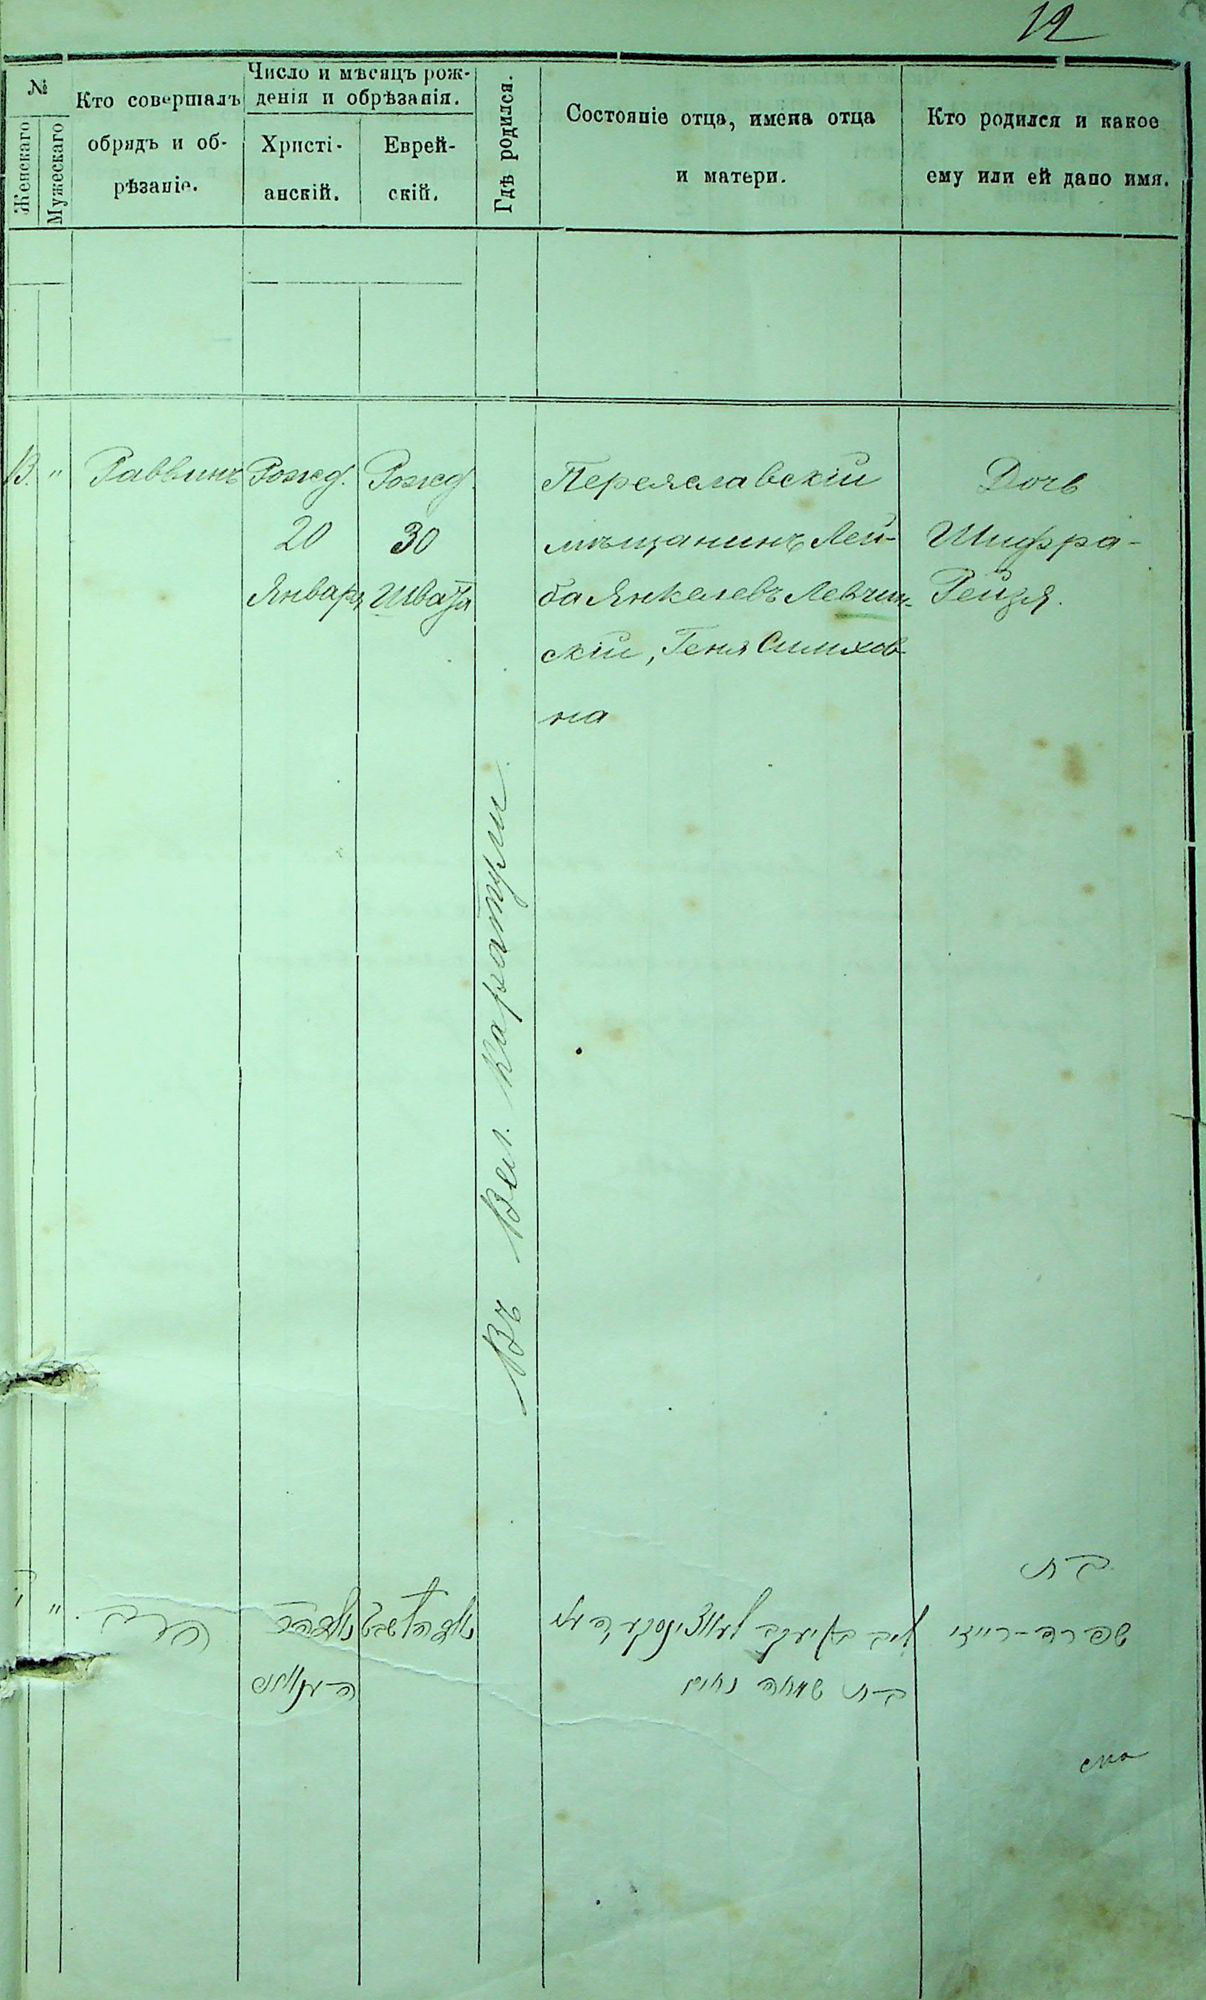 12
№
Женскаго
Мужескаго
Кто совершалъ
обрядъ и об-
рѣзаніе.
Число и мѣсяцъ рож-
денія и обрѣзанія.
Христі-
анскій.
Еврей-
скій.
Гдѣ родился.
Состояніе отца, имена отца
и матери.
Кто родился и какое
ему или ей дано имя.
В. "
Раввинъ
Рожд.
20
Января
Рожд.
30
Швата
Въ Вел. Каратули.
Переяславскій
мѣщанинъ Лей-
ба Янкелевъ Левчин-
скій, Геня Симхов-
на
Дочь
Шифра-
Рейзя.
"
הרב
בת
שפרה-רייזי
בת שמחה